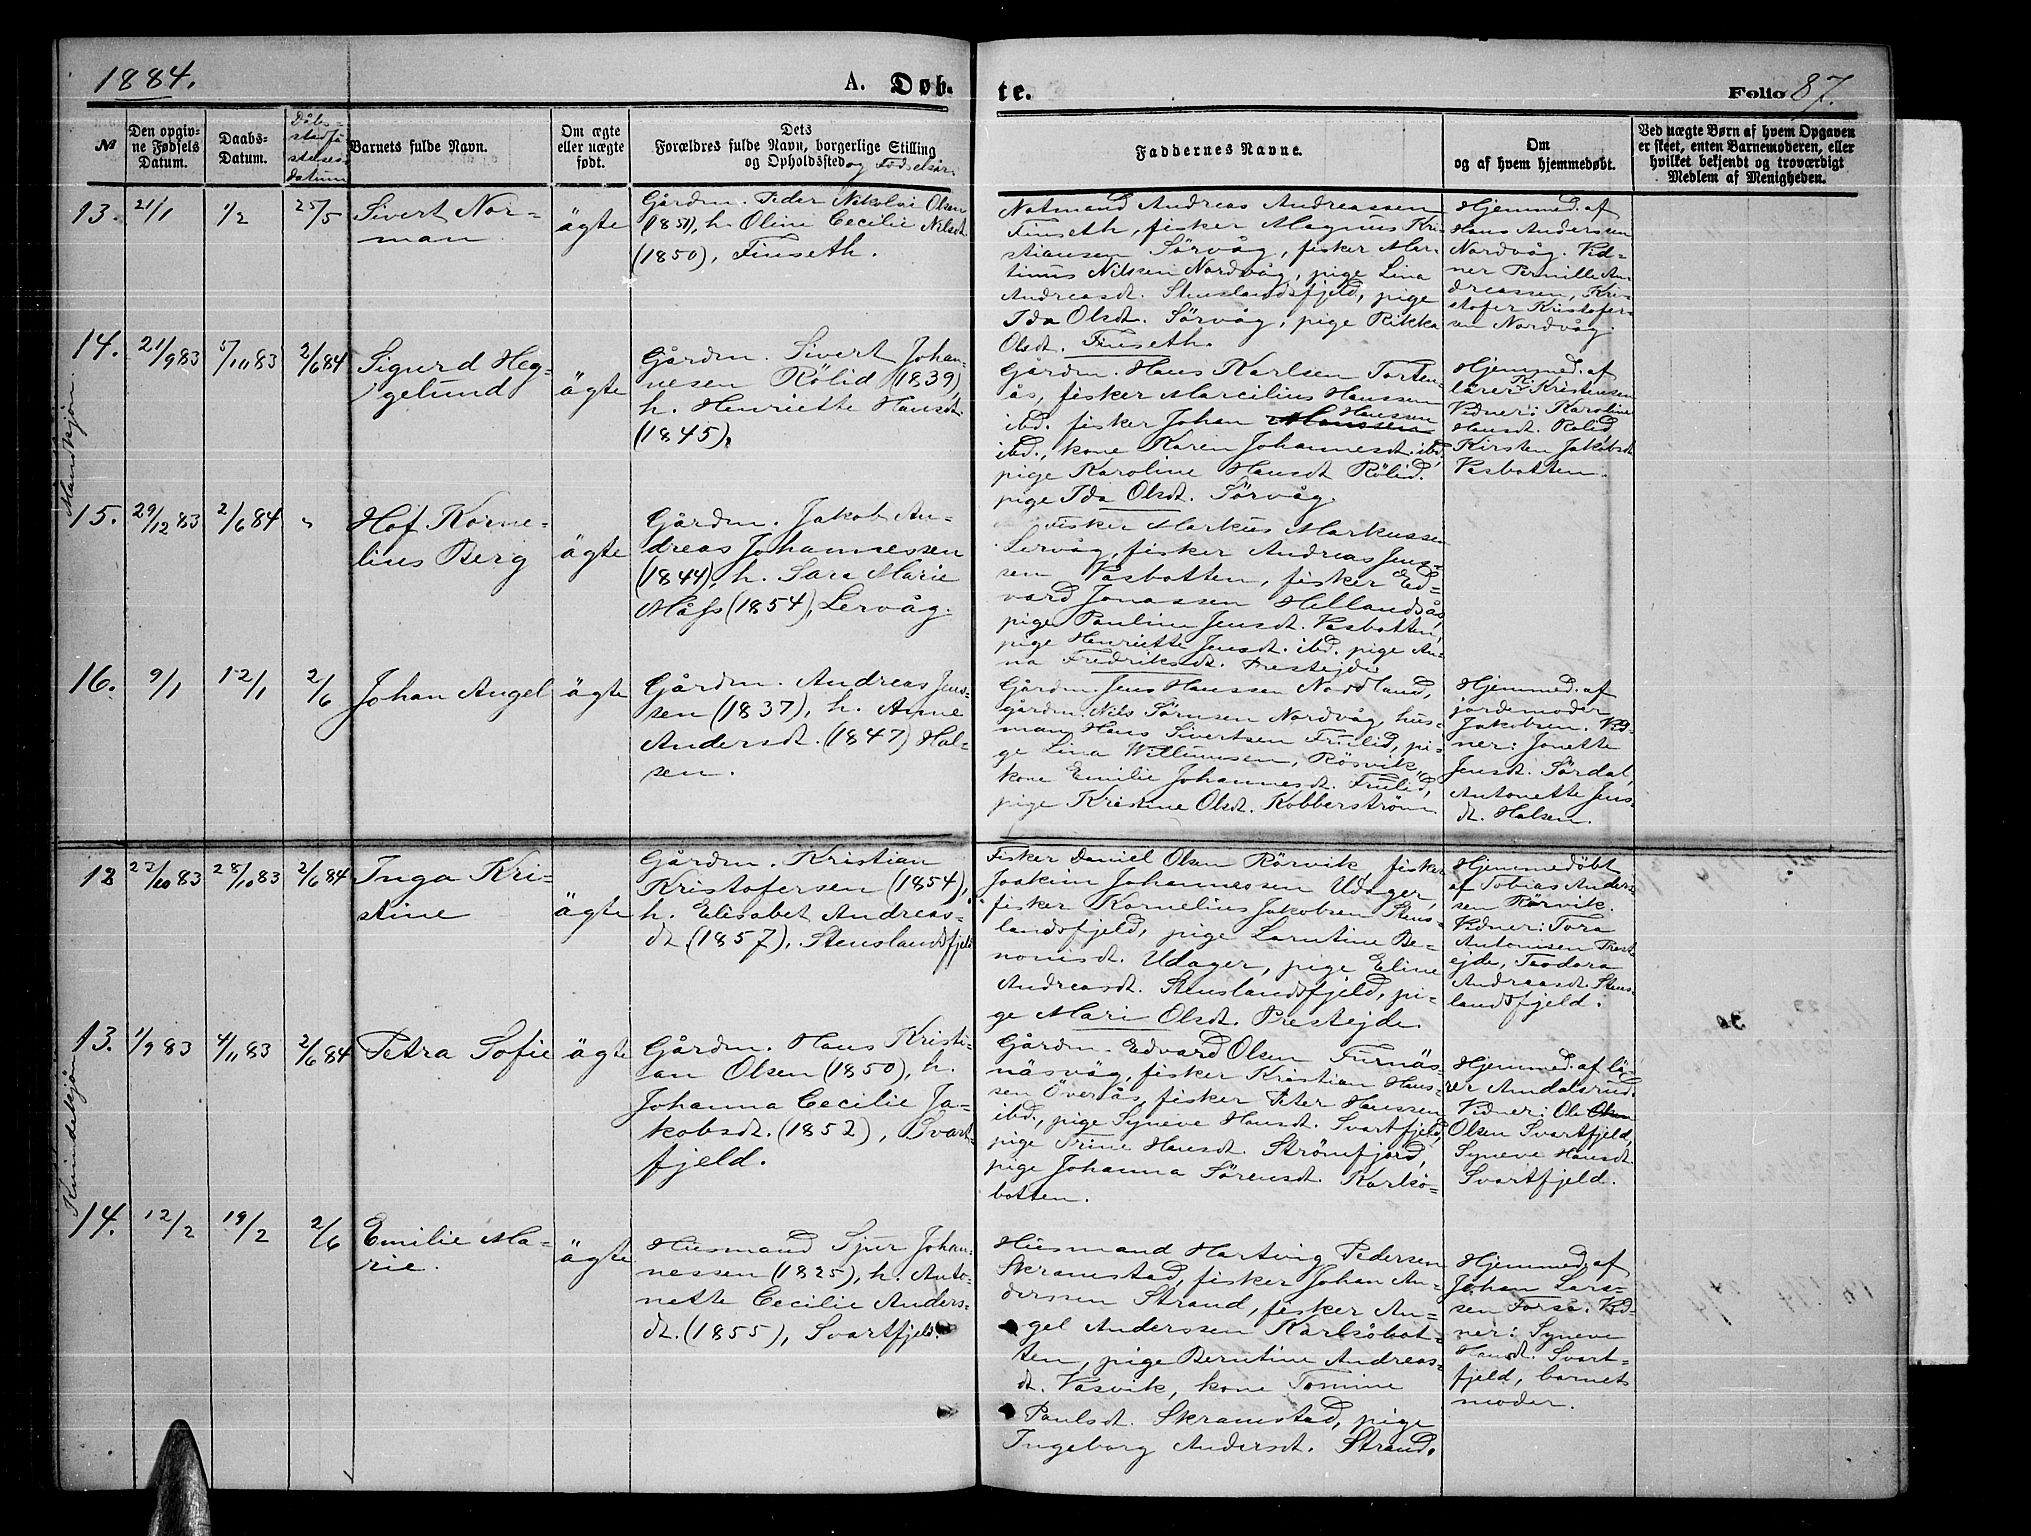 1884.
A. Døb-
te.
Folio 87.
№
Den opgiv-
ne Fødsels
Datum.
Daabs-
Datum.
Dåbs-
stadfä-
stelses-
datum
Barnets fulde Navn.
Om ægte
eller uægte
født.
Dets
Forældres fulde Navn, borgerlige Stilling
og Opholdssted og Fødselsår.
Faddernes Navne.
Om
og af hvem hjemmedøbt.
Ved uægte Børn af hvem Opgaven
er skeet, enten Barnemoderen, eller
hvilket bekjendt og troværdigt
Medlem af Menigheden.
Mandkjøn.
13.
21/1
1/2
25/5
Sivert Nor-
man
ägte
Gårdm. Peder Nikolai Olsen
(1851), h. Oline Cecilie Nilsdt.
(1850), Finseth.
Notmand Andreas Andreassen
Finseth, fisker Magnus Kri-
stiansen Sörvåg, fisker Mar-
tinus Nilsen Nordvåg, pige Lina
Andreasdt. Stenslandsfjeld, pige
Ida Olsdt. Sörvåg, pige Rikka
Olsdt. Finseth.
Hjemmed. af
Hans Anderssen
Nordvåg. Vid-
ner Pernille An-
dreassen, Kris-
tofer Kristofer-
sen Nordvåg.
14.
21/9 83
5/11 83
2/6 84
Sigurd Heg-
gelund
ägte
Gårdm. Sivert Johan-
nesen Rölid (1839),
h. Henriette Hansdt.
(1845).
Gårdm. Hans Karlsen Torten-
ås, fisker Marcilius Hanssen
ibd. fisker Johan Hanssen
ibd., kone Karen Johannesdt. ibd.,
pige Karoline Hansdt Rölid.
pige Ida Olsdt. Sörvåg.
Hjemmed. af
lärer Kristensen
Vidner: Karoline
Hansdt. Rölid
Kirsten Jakobsdt.
Vasbotten.
15.
29/12 83
2/6 84
"
Hof Korne-
lius Berg
ägte
Gårdm. Jakob An-
dreas Johannessen
(1844), h. Sara Marie
Måss (1854), Lervåg.
Fisker Markus Markussen
Lervåg, fisker Andreas Jens-
sen Vasbotten, fisker Ed-
vard Jonassen Hellandsås,
pige Pauline Jensdt. Vasbotten,
pige Henriette Jensdt. ibd. pige An-
na Fredriksdt. Prestejde.
16.
9/1
12/1
2/6
Johan Angel
ägte
Gårdm. Andreas Jens-
sen (1837), h. Anne
Andersdt. (1847) Hal-
sen.
Gårdm. Jens Hanssen Nordland,
gårdm. Nils Sörensen Nordvåg, hus-
man Hans Sivertsen Frulid, pi-
ge Lina Willumsen, Rösvik,
kone Emilie Johannesdt. Frulid,
pige Kristine Olsdt. Kobberström
Hjemmed. af
jordemoder
Jakobsen. Vid-
ner: Jonette
Jensdt. Sördal,
Antonette Jens-
dt. Halsen.
Kvindekjön
12
22/10 83
28/10 83
2/6 84
Inga Kri-
stine
ägte
Gårdm. Kristian
Kristofersen (1854),
h. Elisabet Andreas-
dt. (1857), Stenslandsfjeld
Fisker Daniel Olsen Rörvik fisker
Joakim Johannessen Udager,
fisker Kornelius Jakobsen Stens-
landsfjeld, pige Larntine Be-
nonisdt. Udager, pige Eline
Andreasdt. Stenslandsfjeld, pi-
ge Mari Olsdt. Prestejde.
Hjemmedøbt
af Tobias Anders-
sen Rörvik.
Vidner: Tora
Antonisen Prest-
ejde, Teodora
Andreasdt. Stens-
landsfjeld.
13.
1/9 83
4/11 83
2/6 84
Petra Sofie
ägte
Gårdm. Hans Kristi-
an Olsen (1850), h.
Johanna Cecilie Ja-
kobsdt. (1852), Svart-
fjeld.
Gårdm. Edvard Olsen Furnäs-
näsvåg, fisker Kristian Hans-
sen Överås, fisker Peter Hanssen
ibd., pige Syneve Hansdt. Svartfjeld,
pige Trine Hansdt. Strömfjord,
pige Johanna Sörensdt. Karlsö-
botten.
Hjemmed. af lä-
rer Andalsrud.
Vidner: Ole Olsen
Olsen Svartfjeld,
Syneve Hansdt.
Svartfjeld.
14.
12/2
19/2
2/6
Emilie Ma-
rie.
ägte
Husmand Sjur Johan-
nessen (1825), h. Anto-
nette Cecilie Anders-
dt. (1855), Svartfjeld.
Husmand Hartvig Pedersen
Skramstad, fisker Johan An-
derssen Strand, fisker An-
gel Anderssen Karlsöbot-
ten, pige Berntine Andreas-
dt. Vasvik, kone Tomine
Paulsdt. Skramstad, pige
Ingeborg Andersdt. Strand.
Hjemmed. af
Johan Lars-
sen Forså. Vid-
ner: Syneve
Hansdt. Svart-
fjeld, barnets
moder.